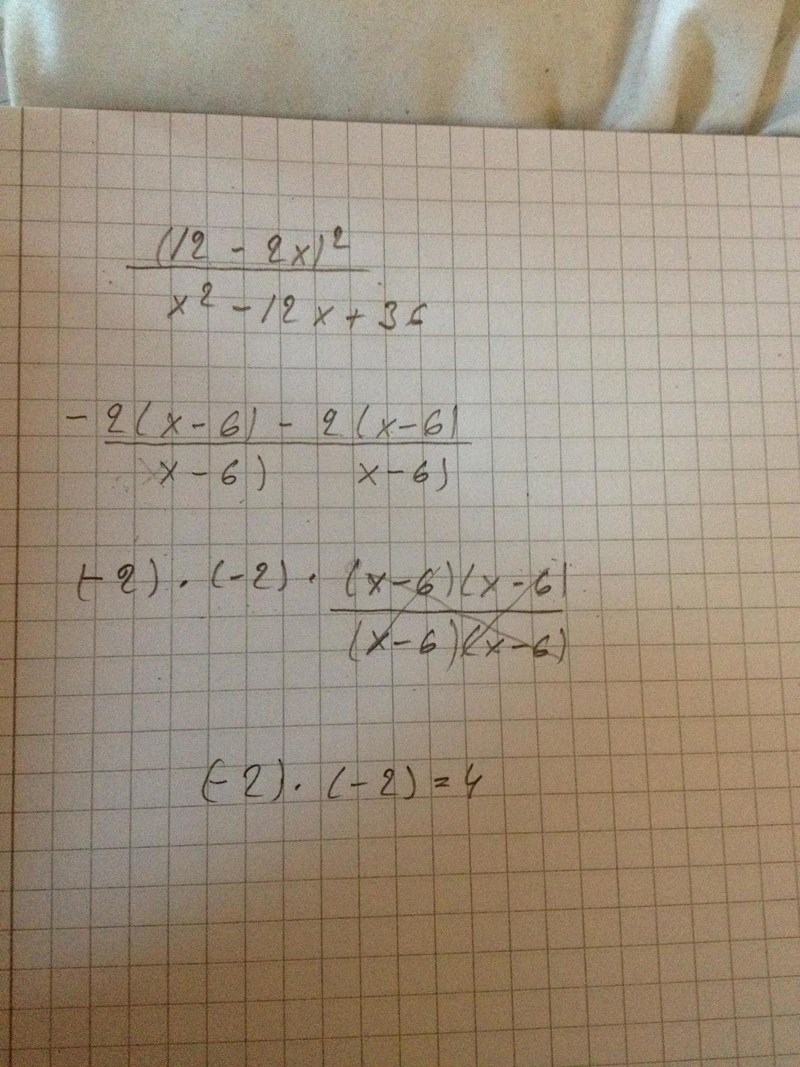 (12 - 2x)²
x² - 12x + 36
- 2(x-6) - 2(x-6)
x-6) x-6)
(-2) · (-2) · (x-6)(x-6)
(x-6)(x-6)
(-2) · (-2) = 4